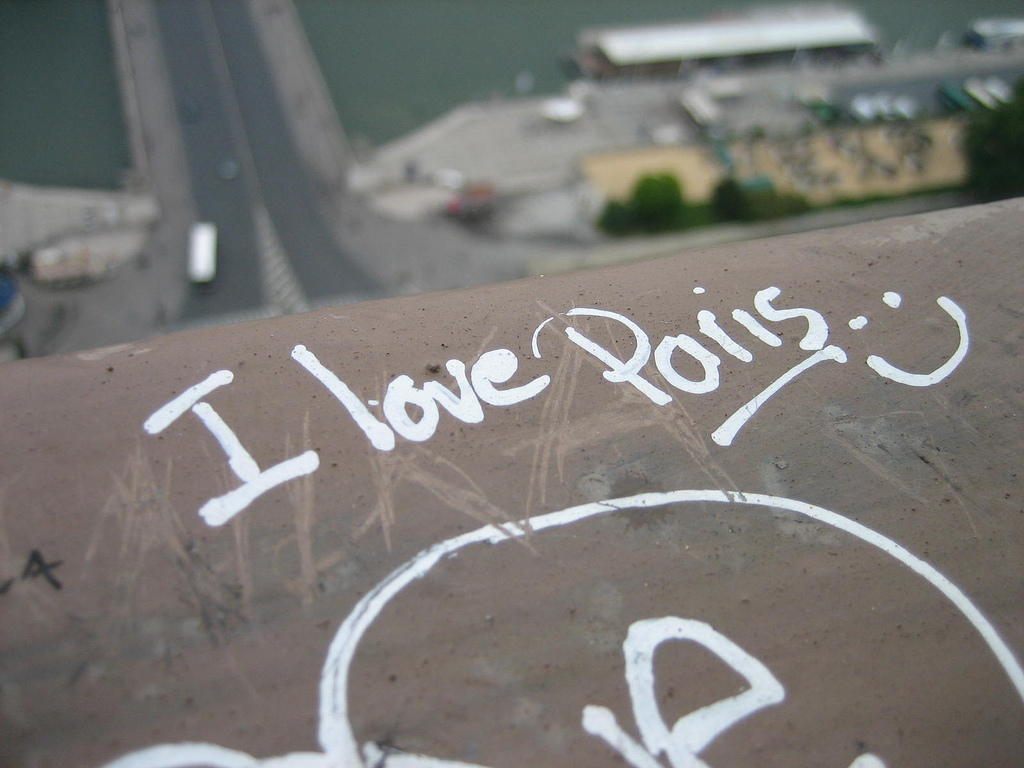 I love Paris :)